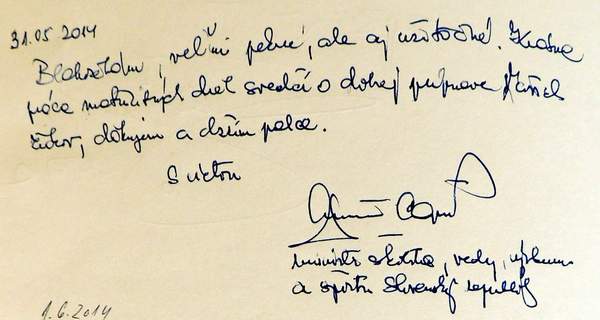 31.05 2014
Blahoželám, veľmi pekné, ale aj užitočné. Krásna
práca maturitných svedčí o dobrej príprave Vašich
žiakov, ďakujem a držím palce.
S úctou
minister školstva, vedy, výskumu
a športu Slovenskej republiky
1.6.2014